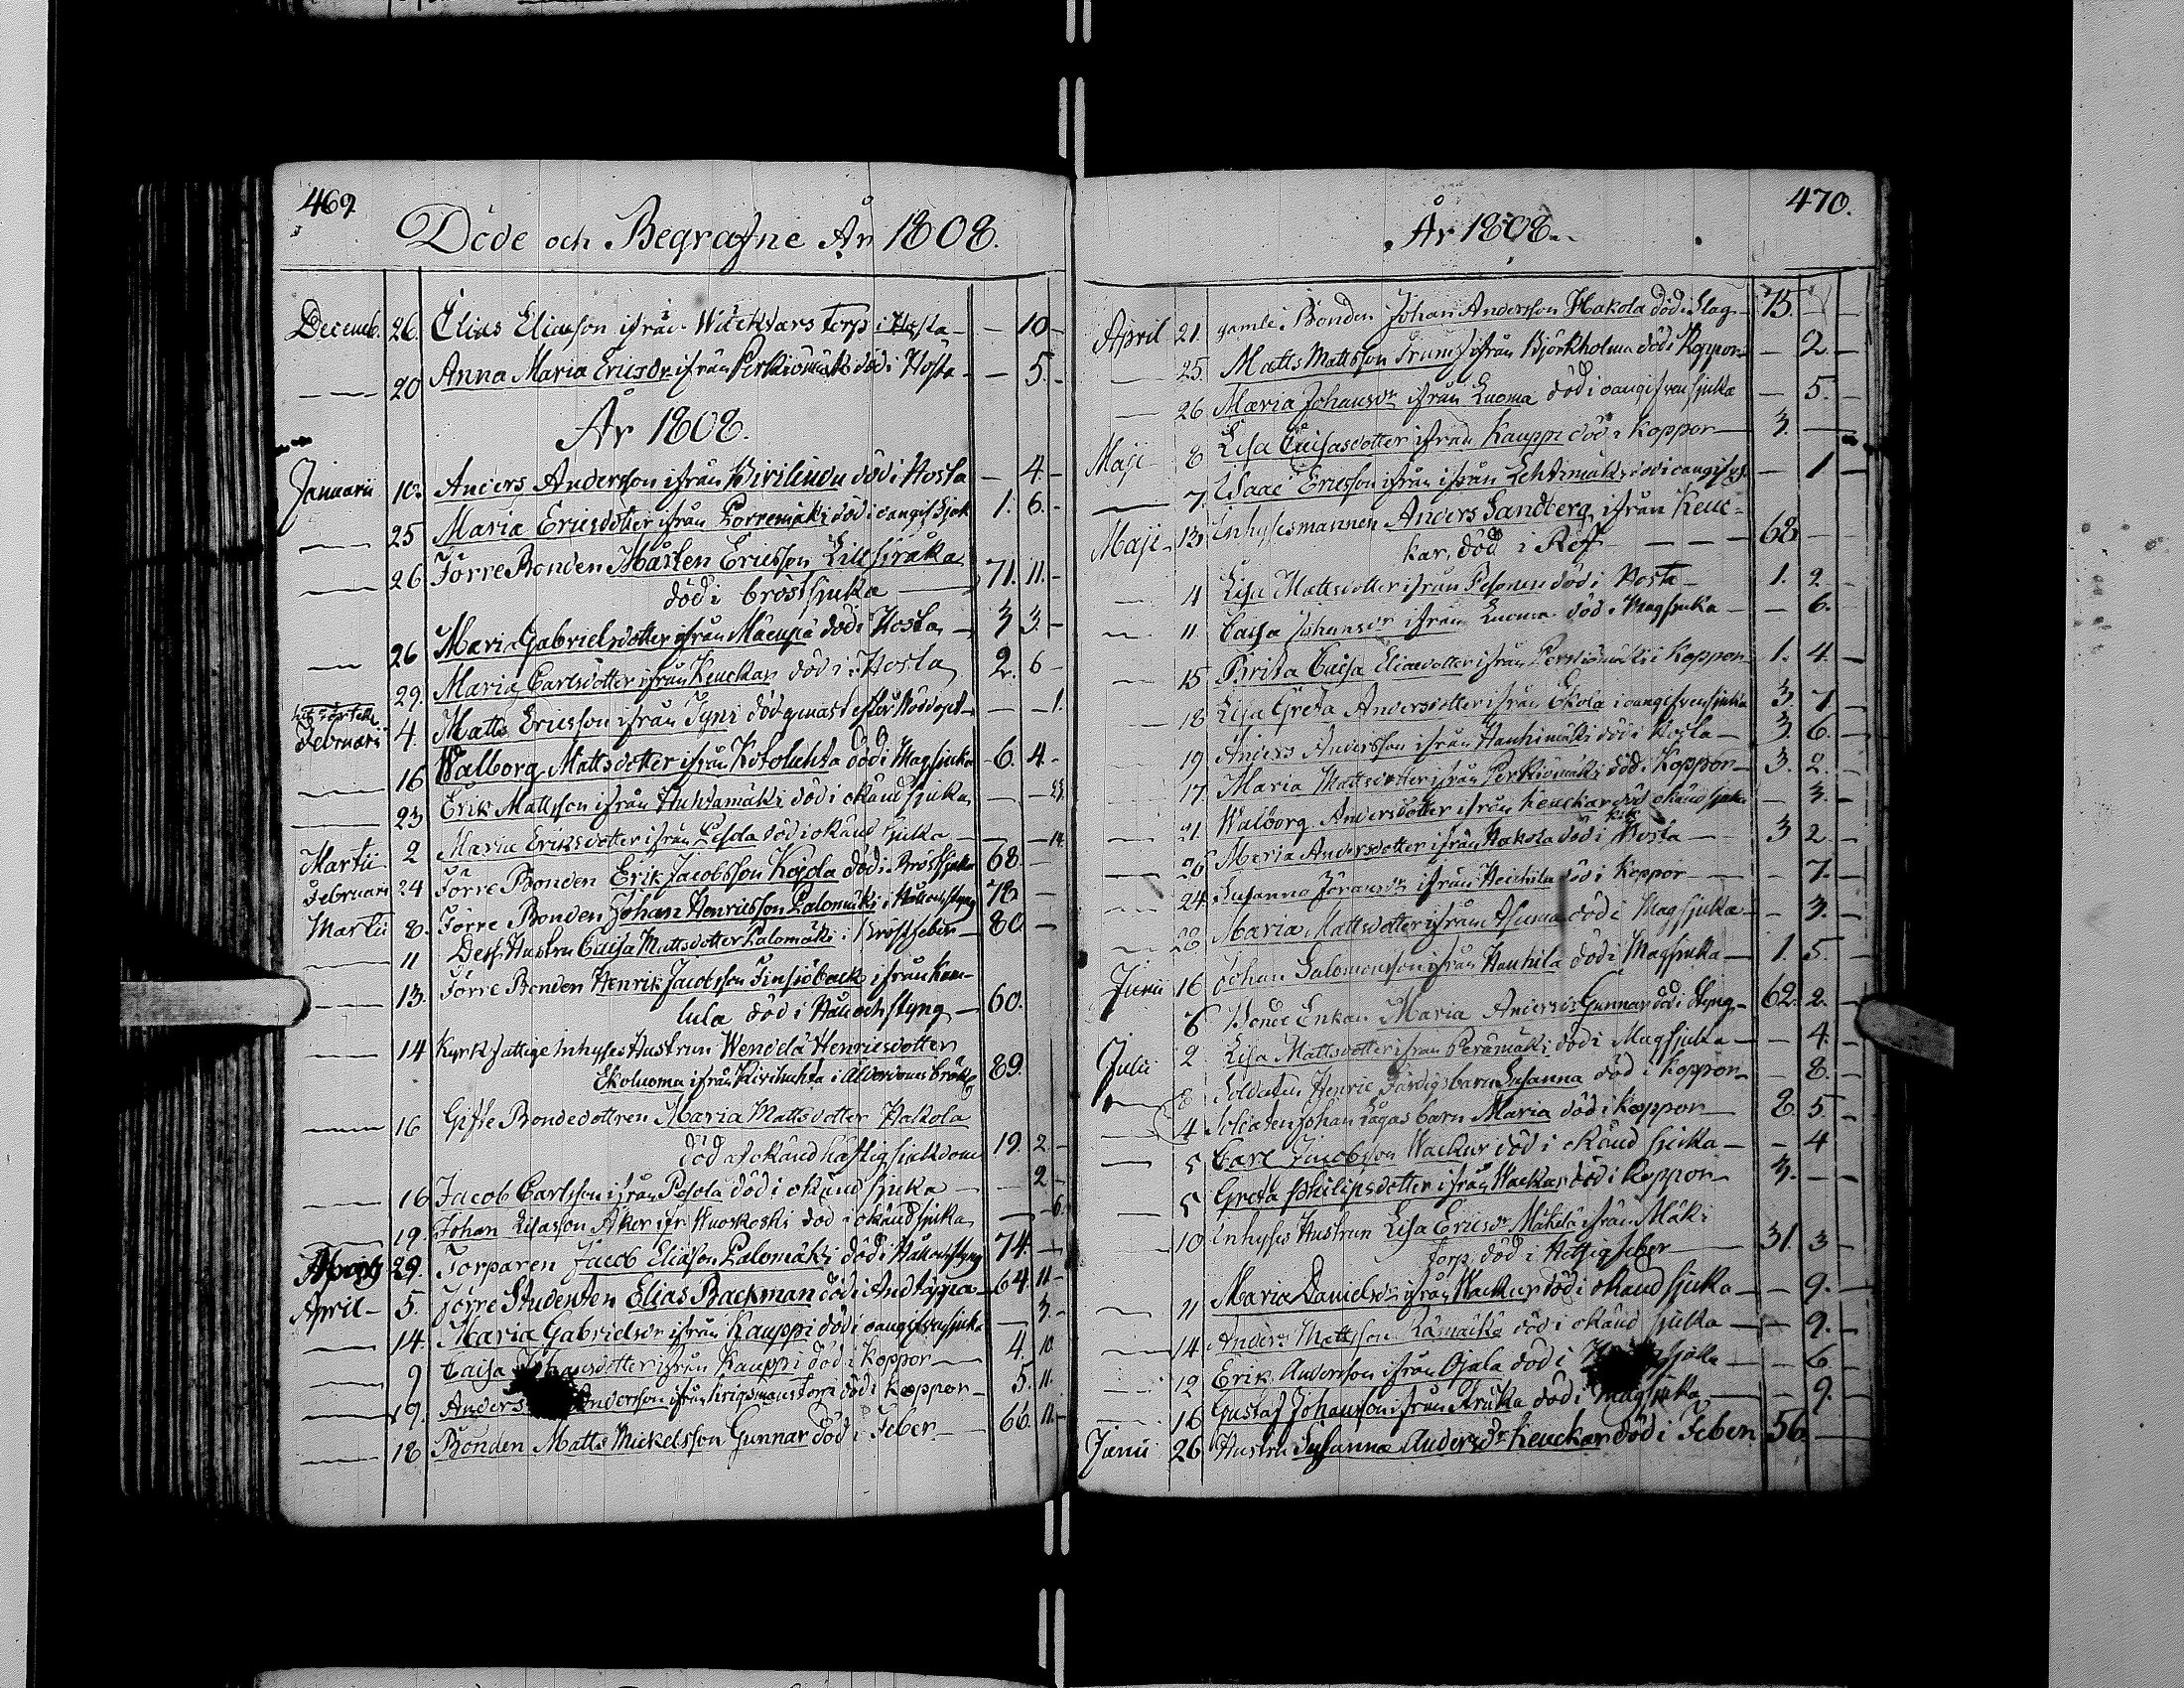 469
Döde och Begrafne År 1808.
Decemb. 26. Elias Eliasson ifrån Wäckars Torp i Hosta — — 10 —
— 20 Anna Maria Ericsdr ifrån Perkiömäki död i Hosta — — 5. —
År 1808.
Januarii 10. Anders Andersson ifrån död i Hosta — 4. —
— 25 Maria Ericsdotter ifrån Porremäki död i oangif. Sjuk 1. 6. —
— 26 Förre Bonden Mårten Ericsson Lillsiråka
död i bröstsjuka — 71. 11. —
— 26 Maria Gabrielsdotter ifrån Mäenpä död i Hosta — 3 3. —
29. Maria Carlsdotter ifrån Keuckar död i Hosta 2. 6 —
Februarii 4. Matts Ericsson ifrån död genast efter Nöddopet — — — 1.
— 16 Walborg Mattsdotter ifrån Kotoluhta död i Magsjuka — 6. 4. —
— 23 Erik Mattsson ifrån Huhtamäki död i okänd sjuka — —
Martii 2 Maria Eriksdotter ifrån Pesola död i okänd sjuka — — 14.
Februarii 24 Förre Bonden Erik Jacobsson Kojola död i Bröstsjuka 68 —
Martii 8. Förre Bonden Johan Henricsson Palomäki i Håll och styng 78 —
— 11 Dess Hustru Caisa Mattsdotter Palomäki i Bröstfeber — 80 —
— 13. Förre Bonden Henrik Jacobsson Finsiöback ifrån Kau-
lula död i Håll och styng — 60.
— 14 Kyrkfattige Inhyses Hustrun Wendela Henricsdotter
Ekoluoma ifrån Kiviluhta i Ålderdoms bräk. 89.
— 16 Gifte Bondedottren Maria Mattsdotter Hakola
död af okänd häftig sjukdom 19. 2. —
— 16 Jacob Carlsson ifrån Pesola död i okänd sjuka — — 2. —
— 19. Johan Åker ifr. Wuoskoski död i okänd sjuka — — 6.
29. Torparen Jacob Eliasson Palomäki död i Håll och styng 74. —
April — 5. Förre Studenten Elias Backman död i Andtäppa — 64. 11 —
— 14. Maria Gabrielsdr ifrån Kauppi död i oangifven sjuka — 3. —
— 9 Caisa Johansdotter ifrån Kauppi död i koppor — 4. 10.
— 19. Anders Andersson ifrån Krigsmans Torp död i koppor — 5. 11.
— 18 Bonden Matts Mickelsson Gunnar död i Feber — 66. 11 —
470.
År 1808.
April 21. gamle Bonden Johan Andersson Hakola död i Slag — 75. — —
— 25. Matts Mattsson ifrån Björkholma död i Koppor — — 2. —
— 26 Maria Johansdr ifrån Luoma död i oangifven sjuka — 5. —
Maji 8 Lisa Caisasdotter ifrån Kauppi död i koppor — 3. —
— 7. Isaac Ericsson ifrån ifrån Lehtimäki död i oangif. sj. — 1 —
Maji — 13. Inhysesmannen Anders Sandberg ifrån Keuc-
kar, död i Röt — — — — 68 — —
— 4 Lisa Mattsdotter ifrån Pesonen död i Hosta — 1. 2. —
— 11. Caisa Johansdr ifrån Luoma död i Magsjuka — — 6.
— 15 Brita Caisa Eliasdotter ifrån Perkiömäki i koppor 1. 4. —
— 18 Lisa Greta Andersdotter ifrån Ekola i oangifven sjuka 3. 7. —
— 19 Anders Andersson ifrån Hauhimäki död i Hosta — 3. 6. —
17. Maria Mattsdotter ifrån Perkiömäki död i Koppor — 3. 2. —
— 21. Walborg Andersdotter ifrån Keuckar död i okänd sjuka — 3. —
— 26 Maria Andersdotter ifrån Hakola död i Hosta — 3 2 —
— 24 Susanna Göransdr ifrån död i koppor — — 7. —
— 28 Maria Mattsdotter ifrån död i Magsjuka — — 3. —
Junii 16 Johan Salomonsson ifrån Hauhila död i Magsjuka — 1. 5. —
6 Bonde Enkan Maria Andersdr Gunnar död i Styng — 62. 2. —
Julii 2 Lisa Mattsdotter ifrån Perämäki död i Magsjuka — — 4. —
— 8 Soldaten Henric Färdigs barn Susanna död i koppor — — 8. —
— 4 Soldaten Johan Lagas barn Maria död i koppor — 2. 5. —
— 5 Carl Jacobsson Wackur död i okänd sjuka — — 4
— 5 Greta Philipsdotter ifrån Wackur död i koppor — 3. — —
— 10 Inhyses Hustrun Lisa Ericsdr Mäkelä ifrån Mäki
Torp, död i Hettsigfeber — 31. 3 —
— 11 Maria Danielsdr ifrån Wackur död i okänd sjuka — — 9. —
— 14 Anders Mattsson död i okänd sjuka — — 9. —
— 12 Erik Andersson ifrån Ojala död i sjuka — — 6. —
— 16 Gustaf Johansson ifrån Kråka död i Magsjuka — — 9. —
Junii 26 Hustru Susanna Andersdr Keuckar död i Feber 56 — —